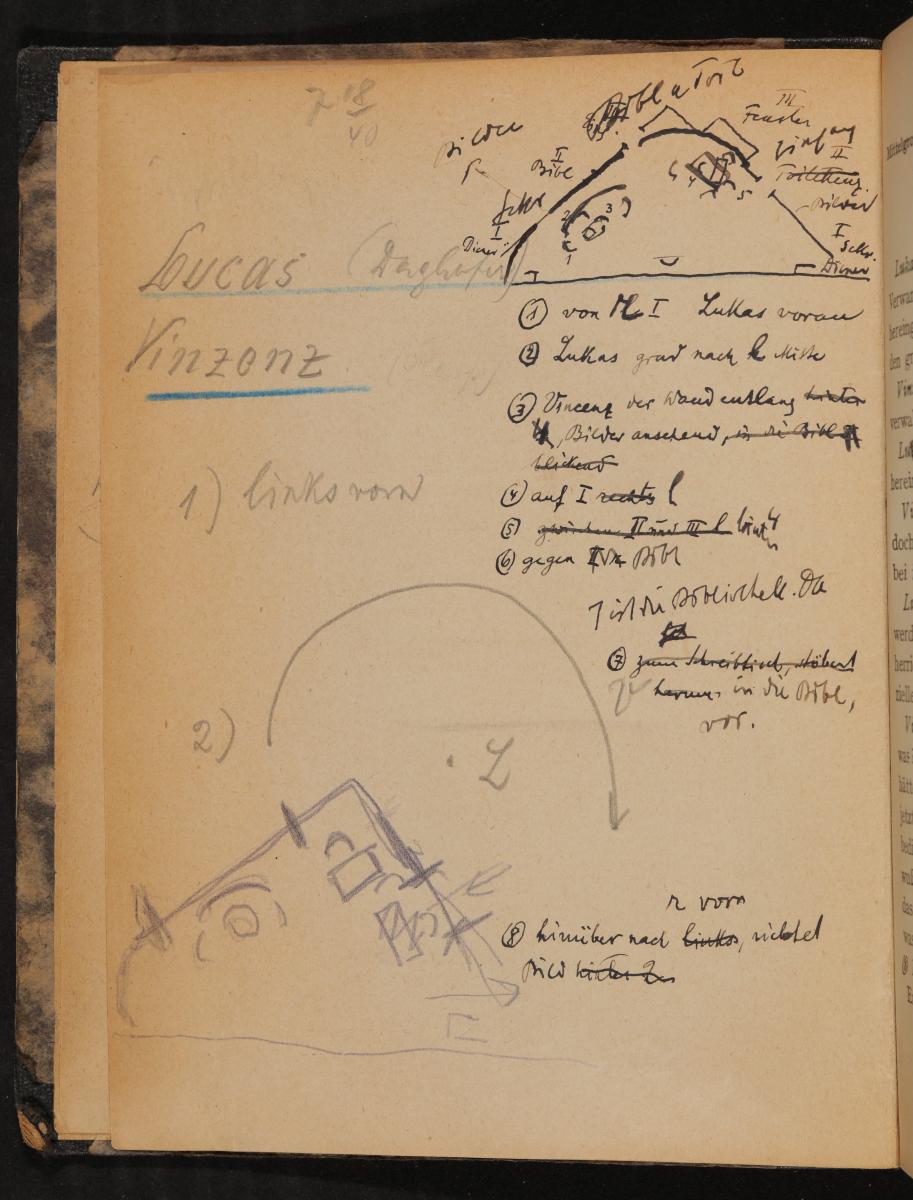 7 18/40
Bilder
Bibl u Toil
III
Fenster
II
Bibl
II
Toilettenz.
Bilder
I
Diener
I
Schr.
Diener
2 3
1
4 5
Lucas
Vinzenz
① von I Lukas voran
② Lukas grad nach l Mitte
③ Vincenz der Wand entlang hinter
4, Bilder ansehend, in die Bibl
blickend
④ auf I rechts l
⑤ zwischen II und III l hint 4
⑥ gegen Bibl
7 ist die Bibliothek. Da
⑦ zum Schreibtisch, stöbert
herum in die Bibl,
vor.
1) links vorn
2)
. L
r vorn
⑧ hinüber nach links, richtet
Bild hinter 2